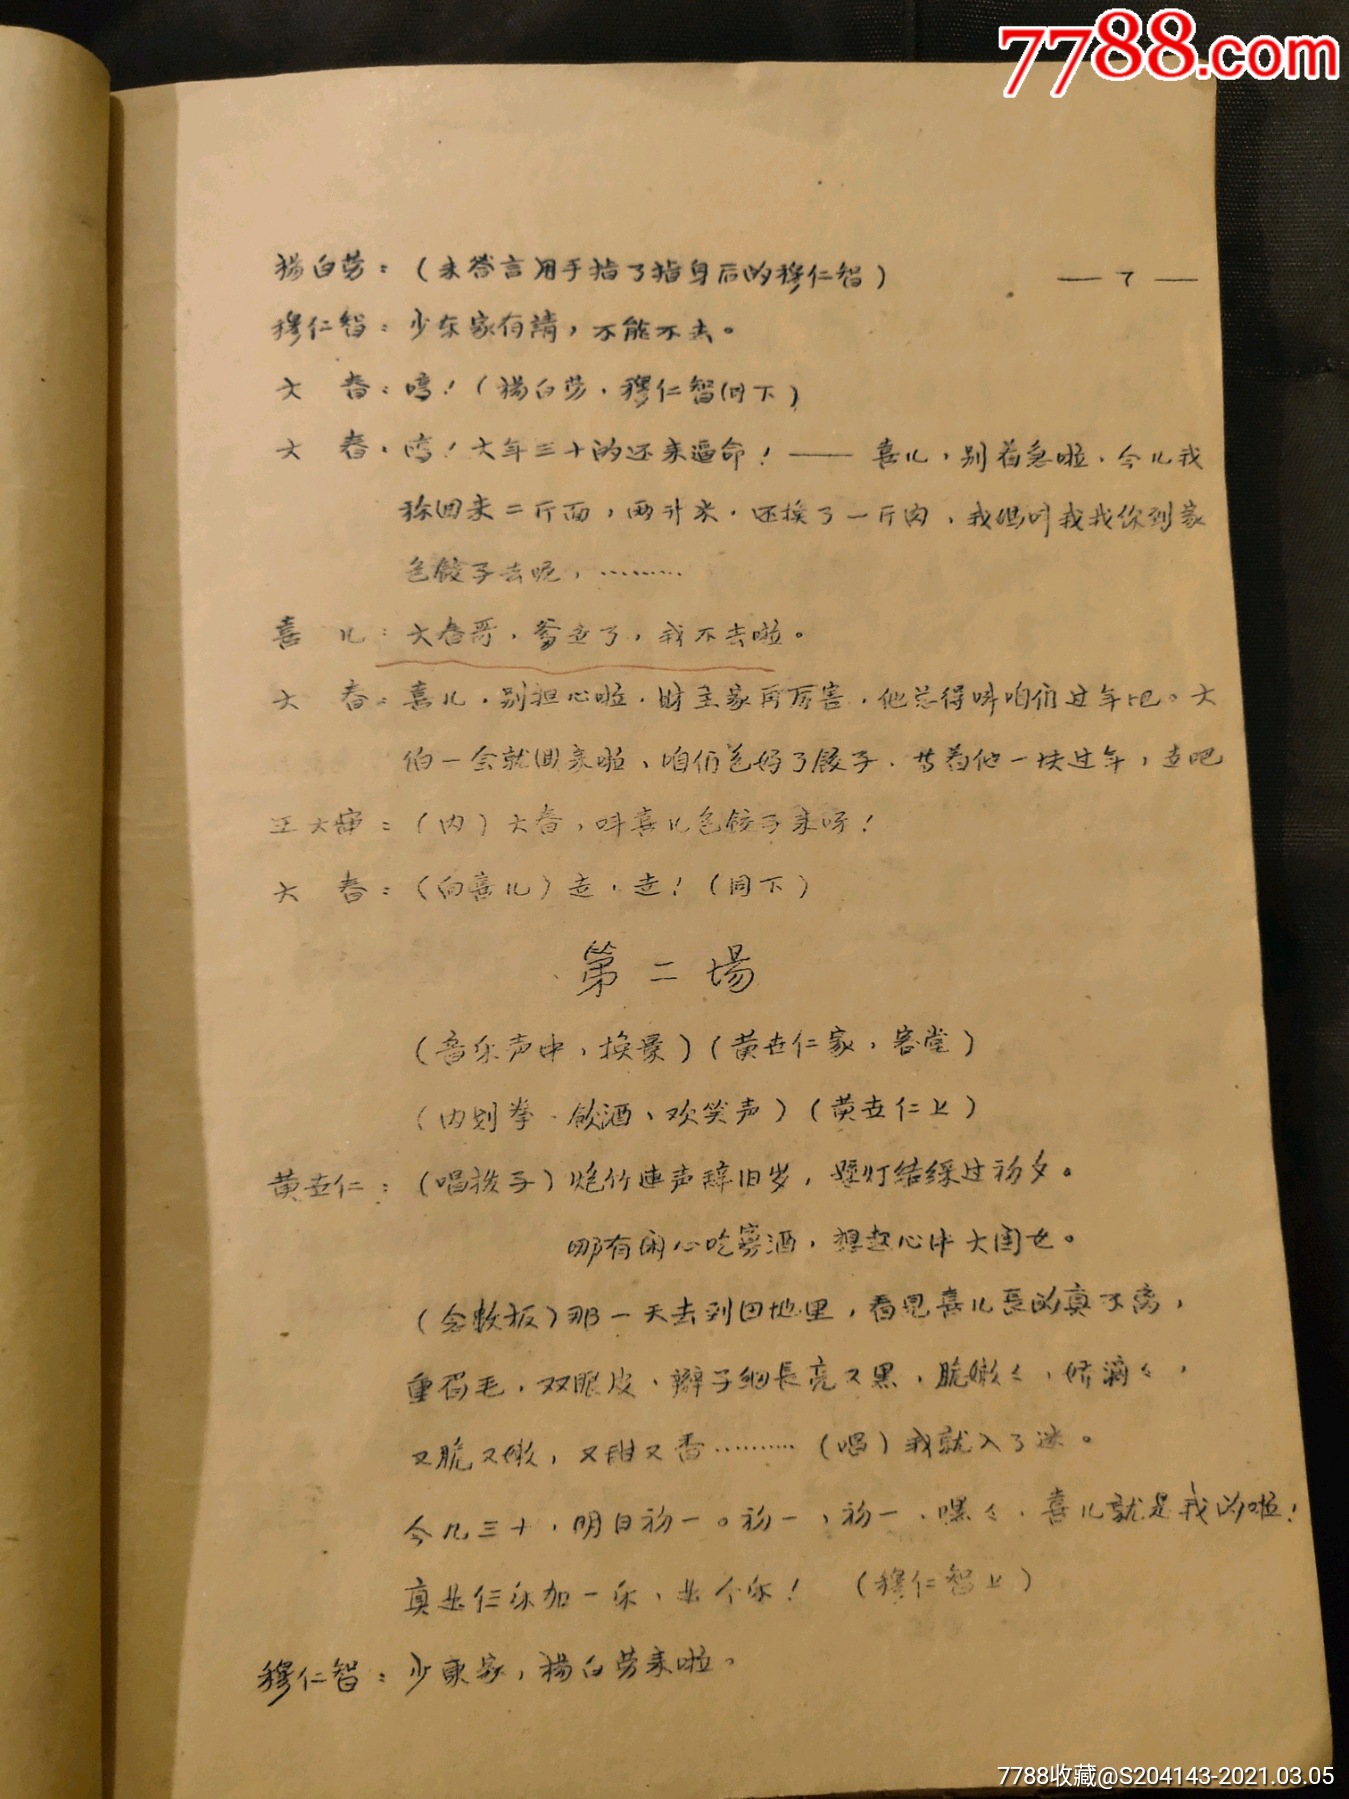 7788.com
— 7 —
楊白劳：（未答言用手指了指身后的穆仁智）
穆仁智：少东家有請，不能不去。
大　春：唔！（楊白劳．穆仁智同下）
大　春：唔！大年三十的还来逼命！—— 喜儿，别着急啦．今儿我
称回来二斤面，两升米．还换了一斤肉，我媽叫我找你到家
包餃子去呢，………
喜　儿：大春哥，爹走了，我不去啦。
大　春：喜儿．别担心啦．財主家再厉害．他总得叫咱们过年吧。大
伯一会就回来啦、咱们包好了餃子．等着他一块过年，走吧
王大嬸：（内）大春，叫喜儿包餃子来呀！
大　春：（向喜儿）走．走！（同下）
第二場
（音乐声中，换景）（黄世仁家，客堂）
（内划拳．飲酒、欢笑声）（黄世仁上）
黄世仁：（唱拨子）炮竹連声辞旧岁，懸灯结綵过初夕。
哪有闲心吃宴酒，想起心中大闺女。
（念数板）那一天去到田地里，看見喜儿長的真不离，
重眉毛，双眼皮、辮子細長亮又黑，脆嫩々，娇滴々，
又脆又嫩，又甜又香………（唱）我就入了迷。
今儿三十．明日初一。初一，初一．嘿々．喜儿就是我的啦！
真是仨乐加一乐、是个乐！（穆仁智上）
穆仁智：少東家，楊白劳来啦。
7788收藏@S204143-2021.03.05